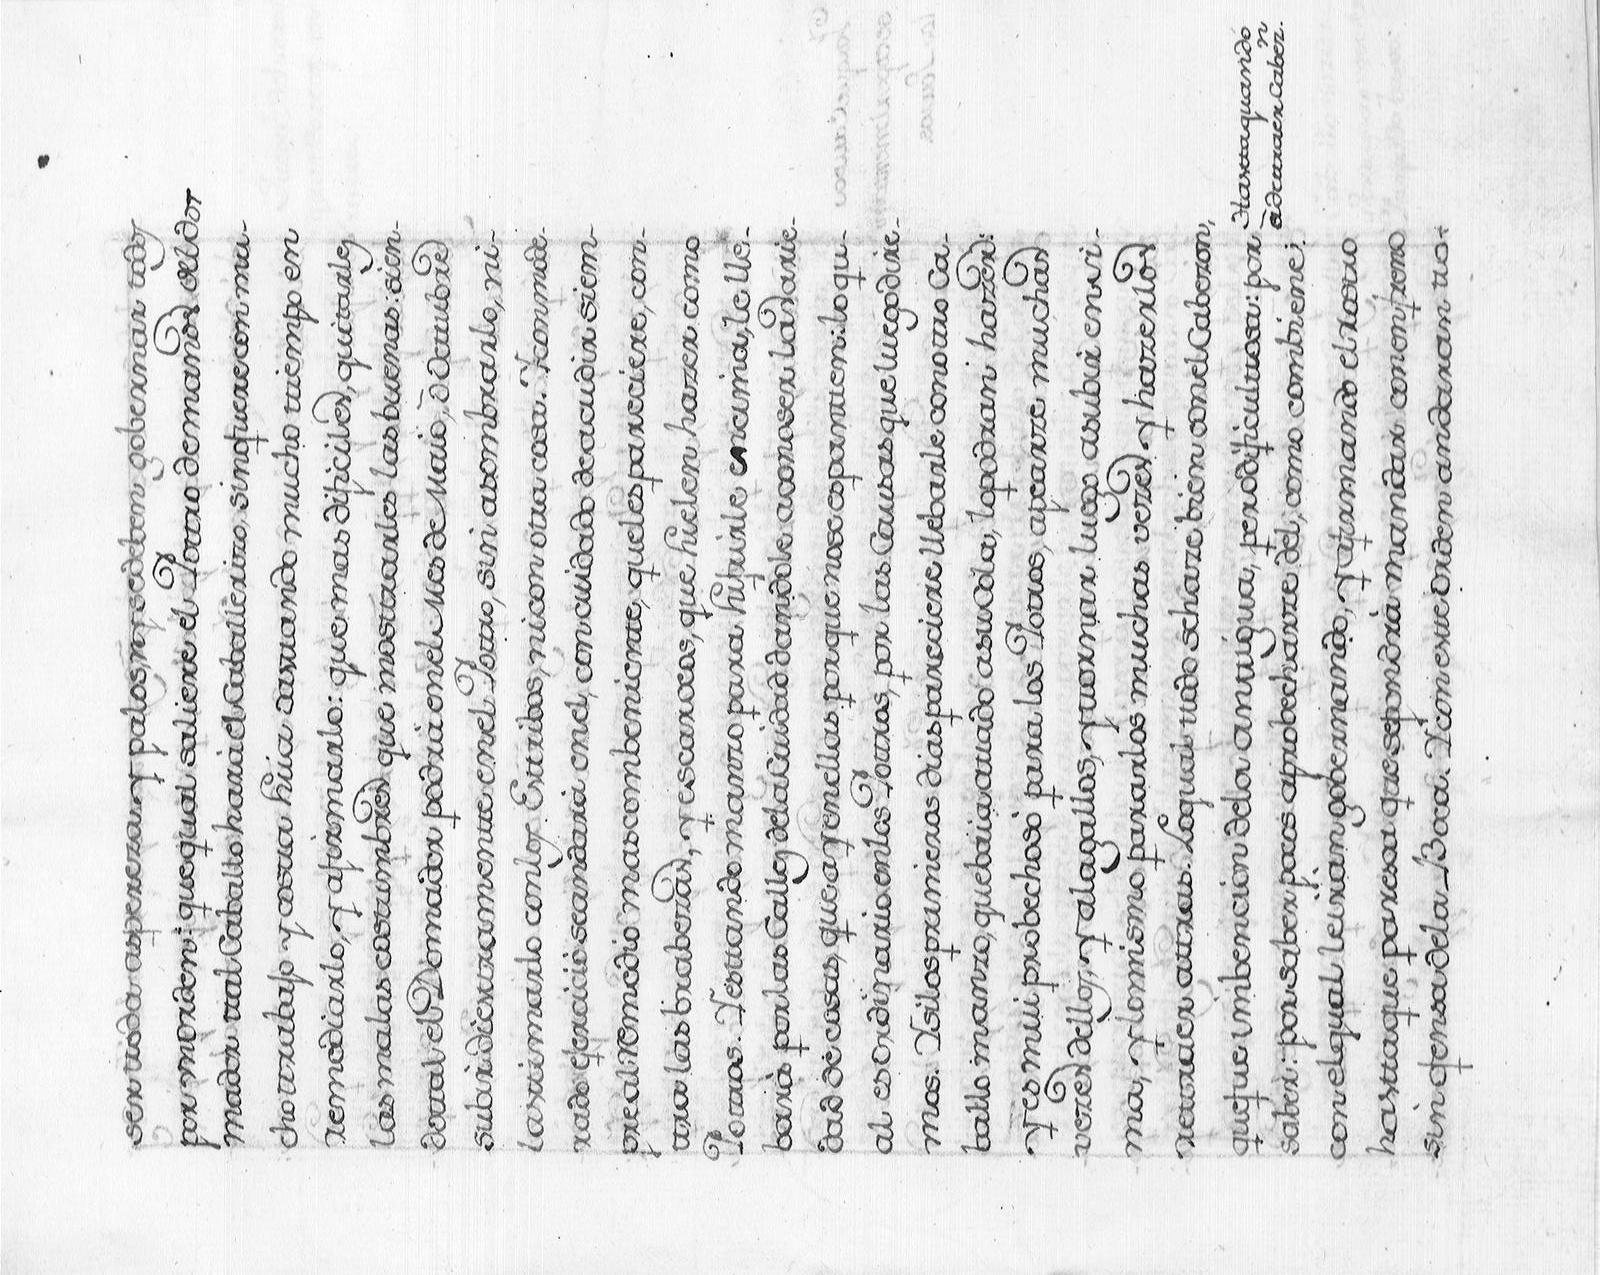 ser tioda aspereza, y palos, no se deben gobernar todos
por un orden: que qual saliere el Potro de manos del dor
mador tal Caballo hara el Caballerizo, sin que ze con mu-
cho trabajo y costa hùia gastando mucho tiempo en
remediarlo, y afirmarlo: que mas dificiles, quitarles
las malas costumbres que mostrarles las buenas: sien-
do tal el Domador podrà en el Mes de Maio, ò Octubre
subir diestramente en el Potro, sin asombrarlo, ni-
lastimarlo con los Estribos, ni con otra cosa. Y con mode-
rado exercicio se andarà en el, con cuidado de acudir siem-
pre al remedio mas combeniente, que les pareciere, con-
tra las brabezas, y escarceos, que suelen hazer como
Potros. Y estiando manzo para huirle encima, le lle-
barà por las Calles de la Ciudad dandole a conoser la varie-
dad de cosas, que ay en ellas porque no se espanten: lo qu-
al es Ordinario en los Potros, por las Causas que luego dire-
mos. Y si los primeros dias pareciere llebarle con otro Ca-
ballo manzo, que baia atado a su Cola, lo podran hazer:
Y es mui probechoso para los Potros, apearse muchas
vezes dellos, y alagallos, y tornar luego a subir en si-
ma, y lo mismo pararlos muchas vezes y hazerlos
recular atras. Lo qual todo se haze bien con el Cabezon,
que fue imbencion de los antiguos, pero dificultosa: por
saber: por saber pocos aprobecharze del, como combiene:
con el qual le iran gobernando, y afirmando el rostro
hasta que paresca que se pondrà mandar con el freno
sin ofensa de la Boca. Y con este Orden andaran to-
Hasta quando
a de traer Cabez.n